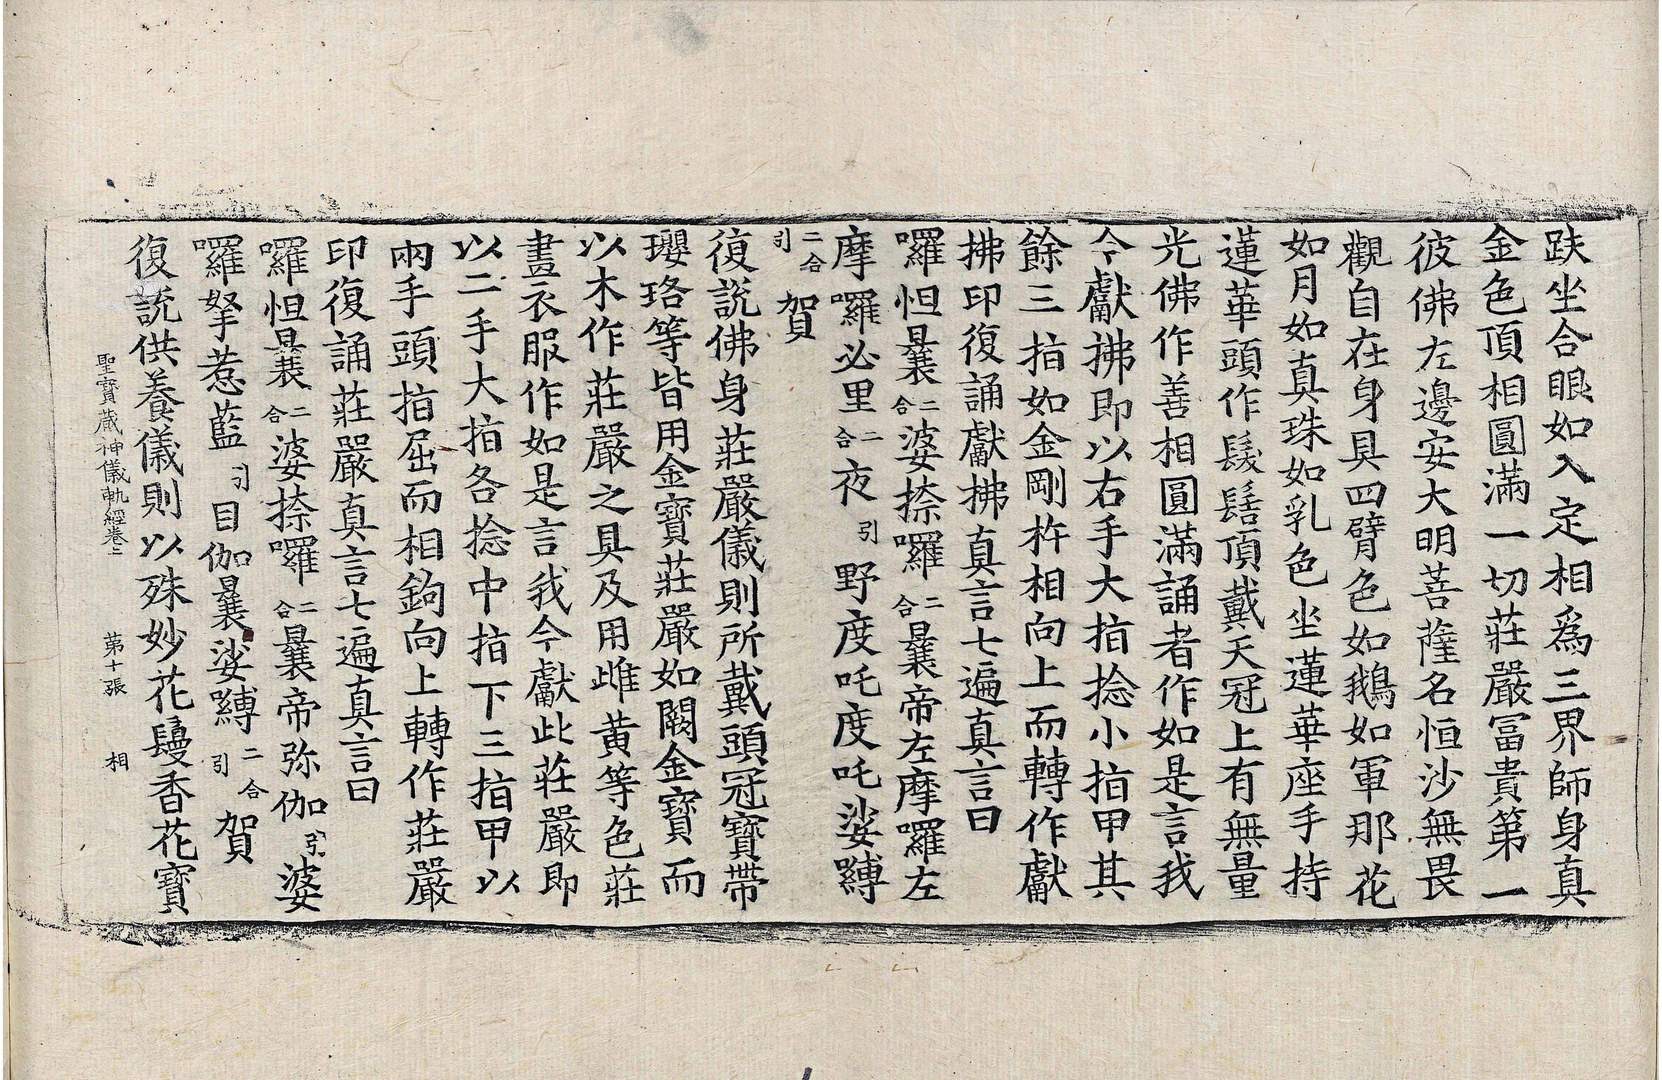 趺坐合眼如入定相爲三界師身真
金色頂相圓滿一切莊嚴冨貴第一
彼佛左邊安大明菩薩名恒沙無畏
觀自在身具四臂色如鵝如軍那花
如月如真珠如乳色坐蓮華座手持
蓮華頭作髮髻頂戴天冠上有無量
光佛作善相圓滿誦者作如是言我
今獻拂即以右手大指捻小指甲其
餘三指如金剛杵相向上而轉作獻
拂印復誦獻拂真言七遍真言曰
囉怛曩二合婆捺囉二合曩帝左摩囉左
摩囉必里二合夜引野度吒度吒娑嚩
二合引賀
復説佛身莊嚴儀則所戴頭冠寳帶
瓔珞等皆用金寳莊嚴如闕金寳而
以木作莊嚴之具及用雌黄等色莊
畫衣服作如是言我今獻此莊嚴即
以二手大指各捻中指下三指甲以
兩手頭指屈而相鉤向上轉作莊嚴
印復誦莊嚴真言七遍真言曰
囉怛曩二合婆捺囉二合曩帝弥伽引婆
囉拏惹藍引目伽曩娑嚩二合引賀
復説供養儀則以殊妙花鬘香花寳
聖寳蔵神儀軌經卷上 第十張 相